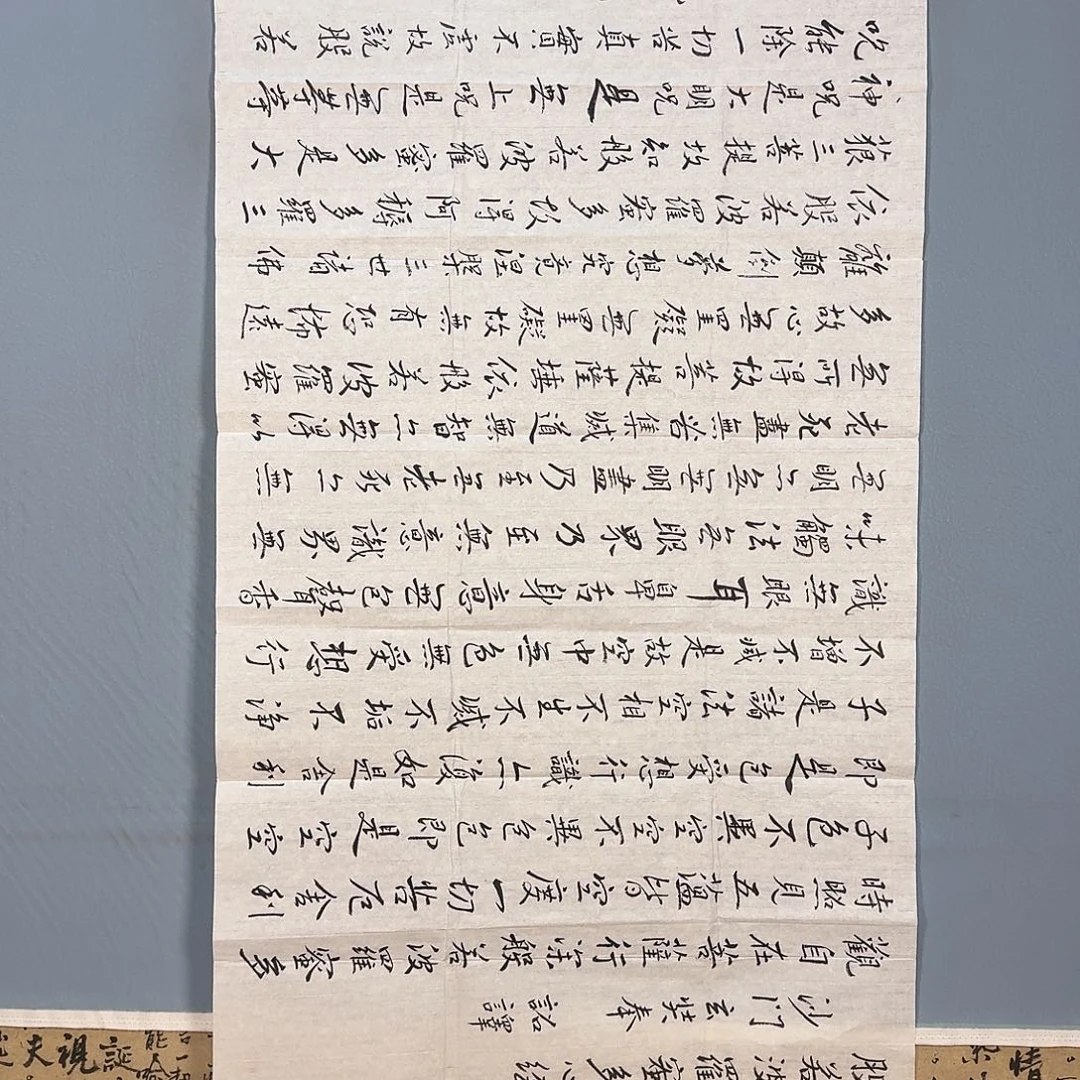 般若波羅蜜多心經
沙門玄奘奉詔譯
觀自在菩薩行深般若波羅蜜多
時照見五蘊皆空度一切苦厄舍利
子色不異空空不異色色即是空空
即是色受想行識亦復如是舍利
子是諸法空相不生不滅不垢不淨
不增不減是故空中無色無受想行
識無眼耳鼻舌身意無色聲香
味觸法無眼界乃至無意識界無
無明亦無無明盡乃至無老死亦無
老死盡無苦集滅道無智亦無得以
無所得故菩提薩埵依般若波羅蜜
多故心無罣礙無罣礙故無有恐怖遠
離顛倒夢想究竟涅槃三世諸佛
依般若波羅蜜多故得阿耨多羅三
藐三菩提故知般若波羅蜜多是大
神咒是大明咒是無上咒是無等等
咒能除一切苦真實不虛故說般若